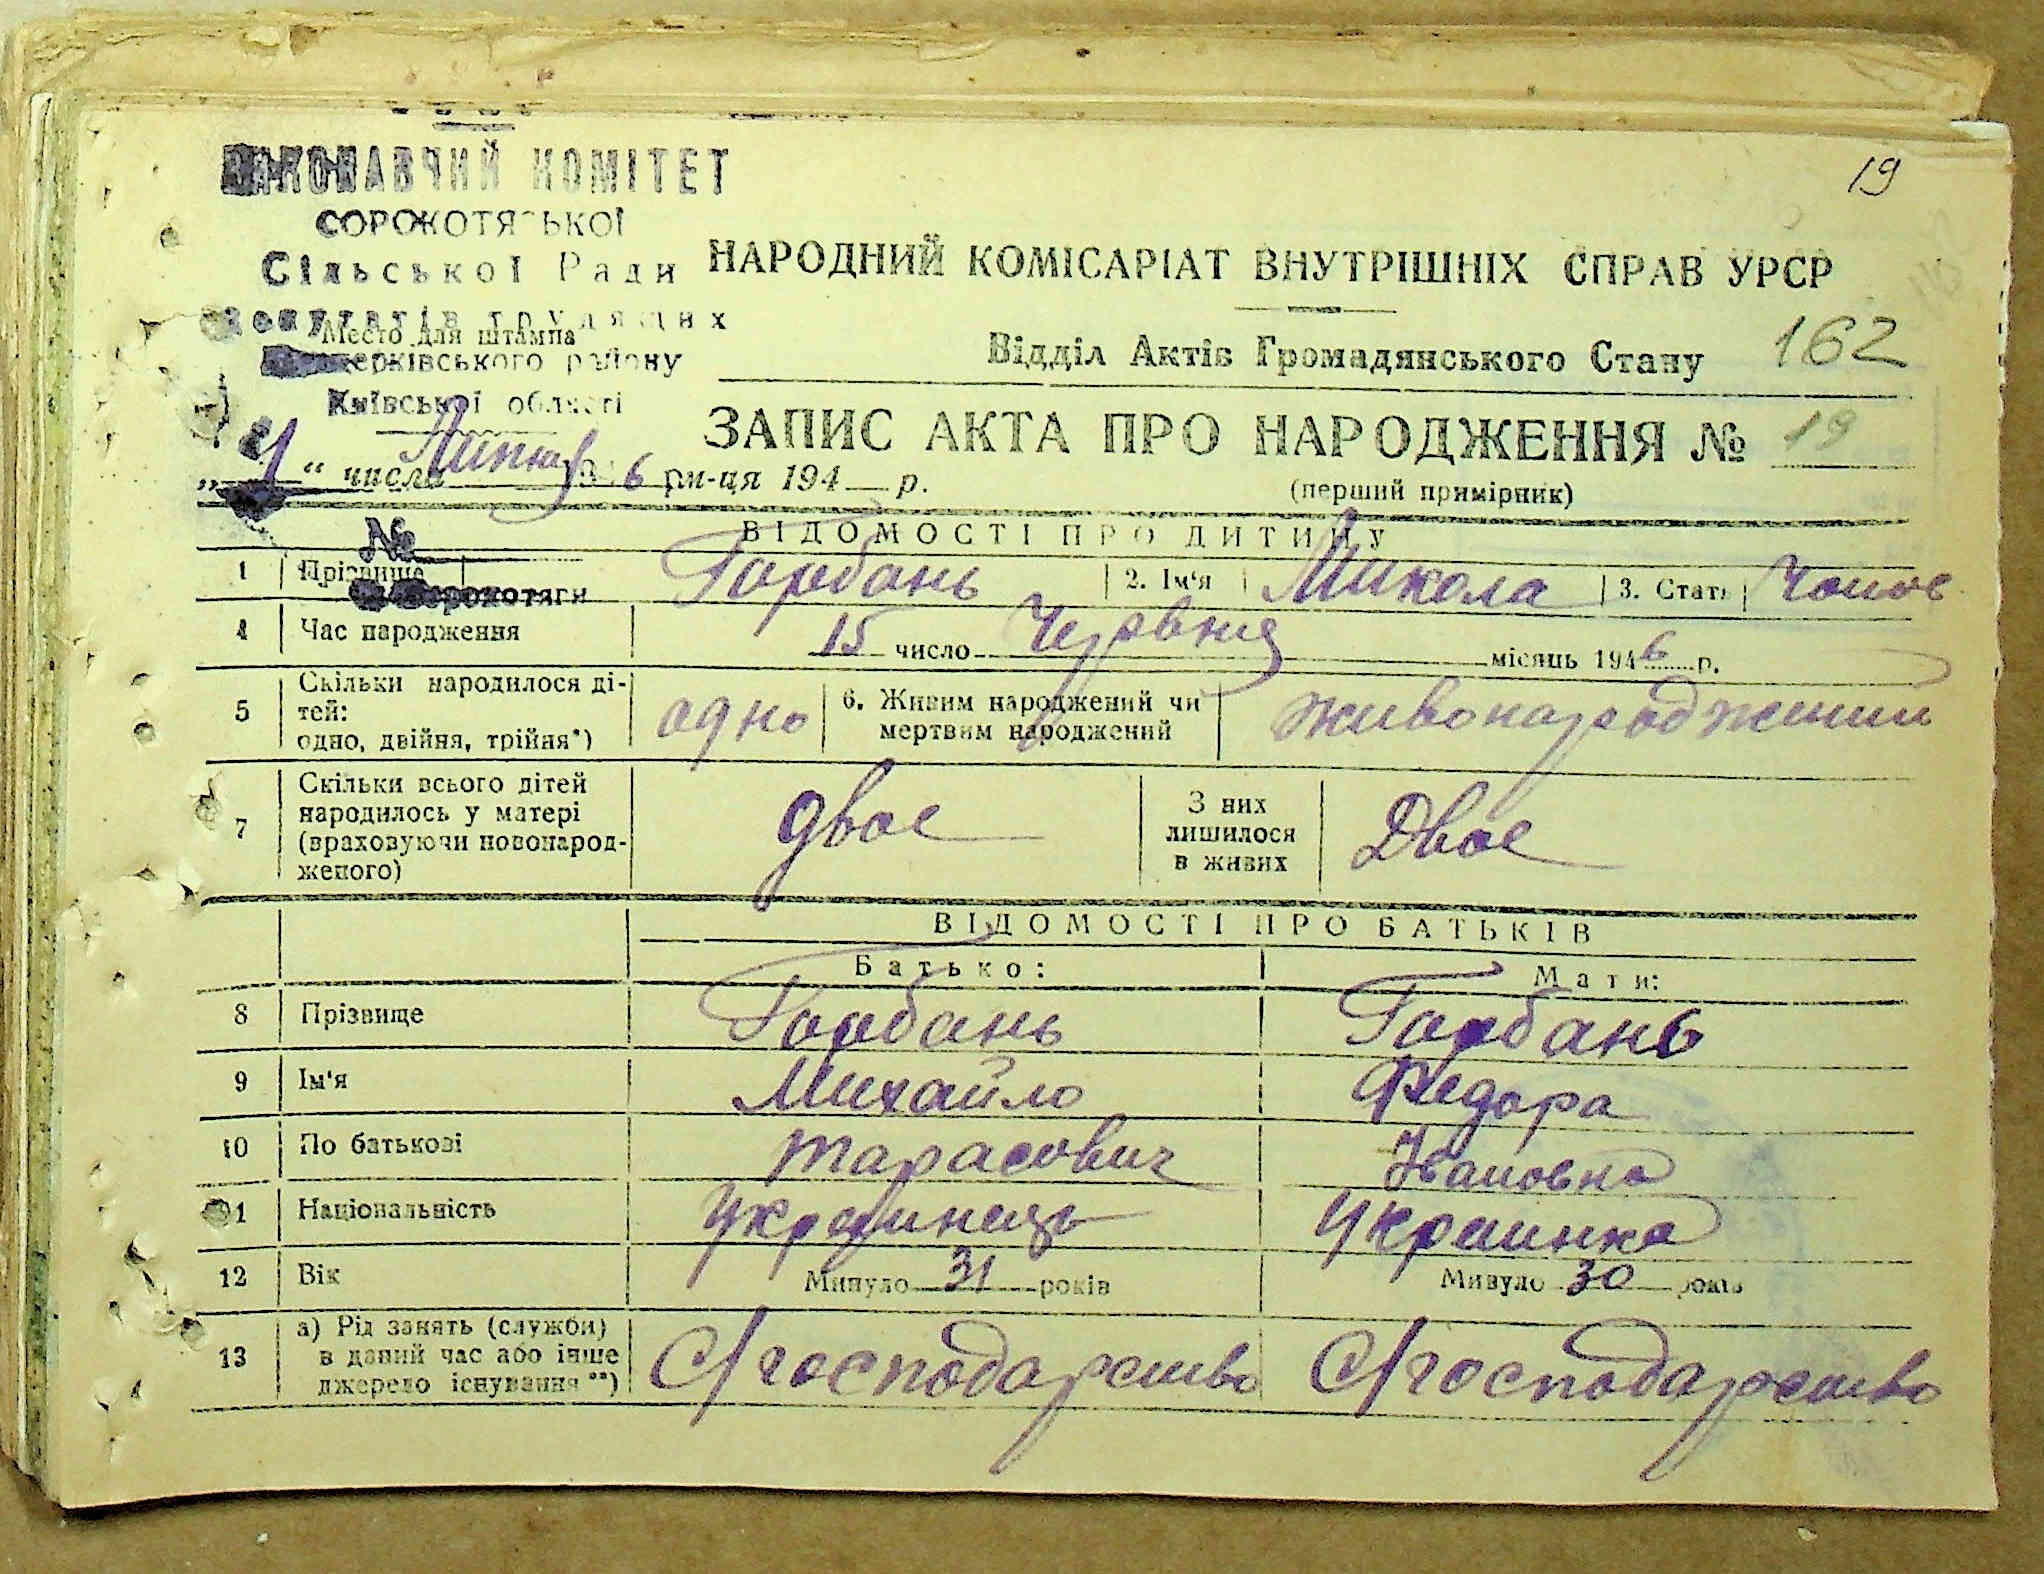 19
ВИКОНАВЧИЙ КОМІТЕТ
СОРОКОТЯ ЬКОЇ
Сільської Ради
Депутатів трудящих
Место для штампа
ерківського району
Київської області
НАРОДНИЙ КОМІСАРІАТ ВНУТРІШНІХ СПРАВ УРСР
Відділ Актів Громадянського Стану 162
ЗАПИС АКТА ПРО НАРОДЖЕННЯ № 19
(перший примірник)
„1“ числа Липня 6 р м-ця 194 р.
№
ВІДОМОСТІ ПРО ДИТИНУ
1 Прізвище Горбань 2. Ім'я Микола 3. Стать Чолов
Сорокотяги
4 Час народження 15 число Червня місяць 1946 р.
5 Скільки народилося ді-
тей:
одно, двійня, трійня*) одно 6. Живим народжений чи
мертвим народжений живонароджений
7 Скільки всього дітей
народилось у матері
(враховуючи новонарод-
женого) двое З них
лишилося
в живих Двое
ВІДОМОСТІ ПРО БАТЬКІВ
Батько: Мати:
8 Прізвище Горбань Горбань
9 Ім'я Михайло Федора
10 По батькові Тарасович Івановна
11 Національність Українець Украинка
12 Вік Минуло 31 років Минуло 30 років
13 а) Рід занять (служби)
в даний час або інше
джерело існування**) С/господарство С/господарство